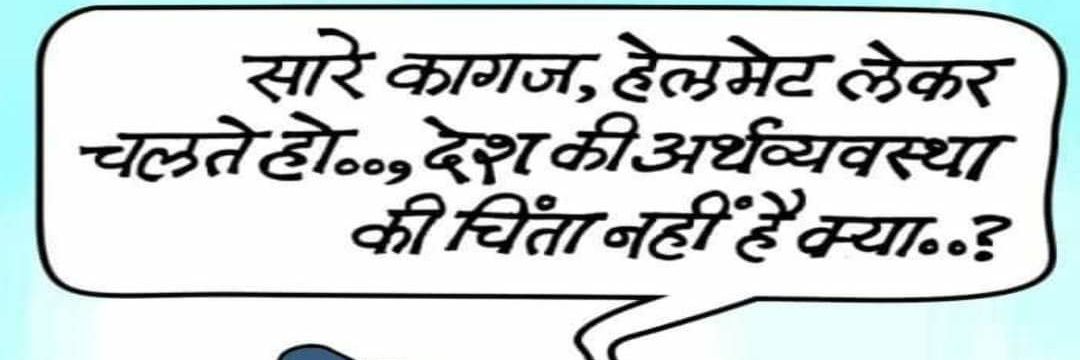 सारे कागज, हेलमेट लेकर
चलते हो..., देश की अर्थव्यवस्था
की चिंता नहीं है क्या..?